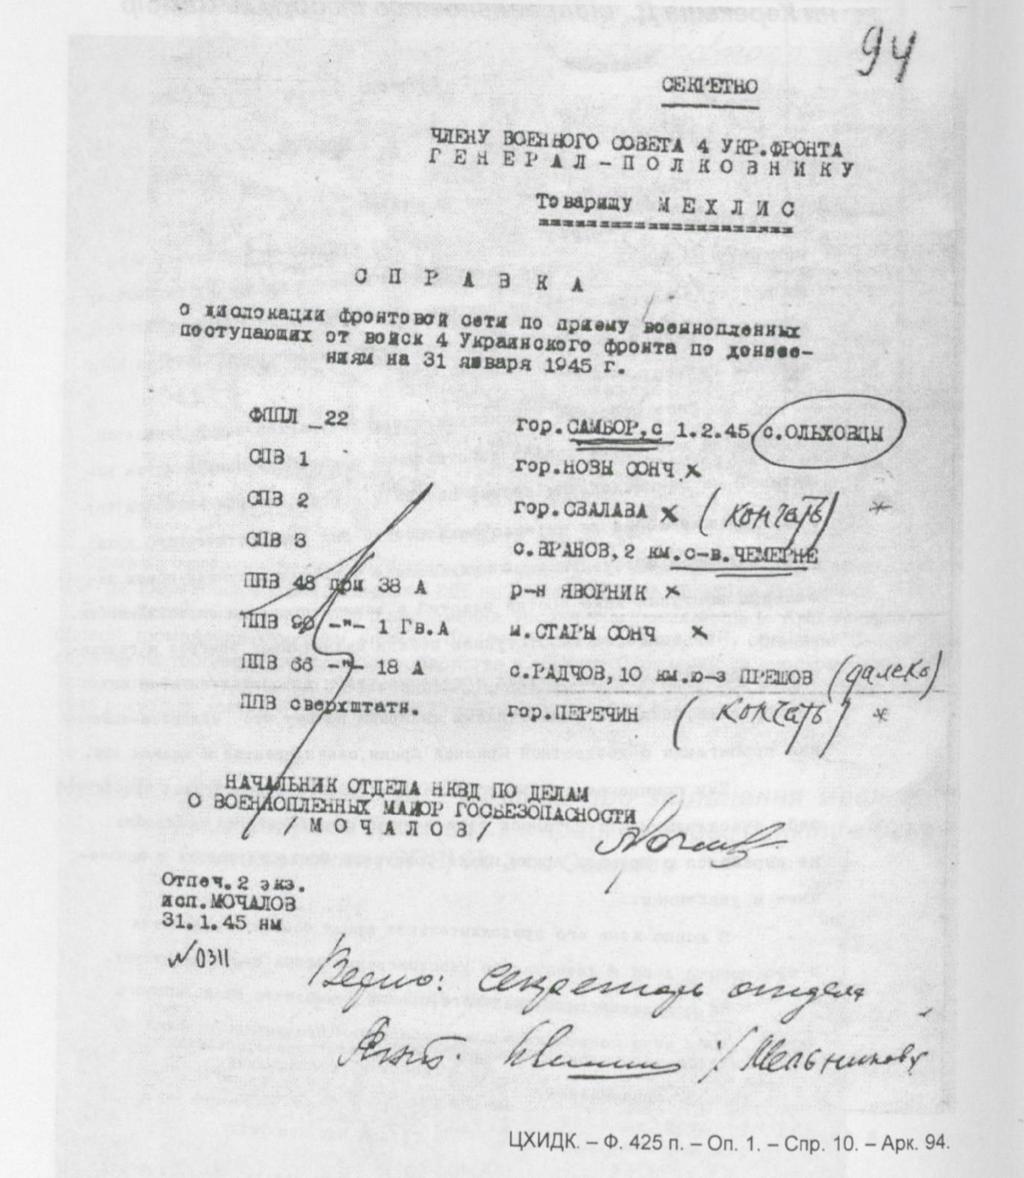 94
СЕКРЕТНО
ЧЛЕНУ ВОЕННОГО СОВЕТА 4 УКР.ФРОНТА
ГЕНЕРАЛ-ПОЛКОВНИКУ
Товарищу МЕХЛИС
СПРАВКА
о дислокации фронтовой сети по приему военнопленных
поступающих от войск 4 Украинского фронта по донесе-
ниям на 31 января 1945 г.
ФППЛ _22 гор.САМБОР,с 1.2.45 с.ОЛЬХОВЦЫ
СПВ 1 гор.НОВЫ СОНЧ х
СПВ 2 гор.СВАЛАВА х (кончать) *
СПВ 3 с.ВРАНОВ, 2 км.с-в.ЧЕМЕРНЕ
ППВ 48 при 38 А р-н ЯВОРНИК х
ППВ 90 -"- 1 Гв.А м.СТАРЫ СОНЧ х
ППВ 66 -"- 18 А с.РАДЧОВ, 10 км.ю-з ПРЕШОВ (далеко)
ППВ сверхштатн. гор.ПЕРЕЧИН (кончать) *
НАЧАЛЬНИК ОТДЕЛА НКВД ПО ДЕЛАМ
О ВОЕННОПЛЕННЫХ МАЙОР ГОСБЕЗОПАСНОСТИ
/МОЧАЛОВ/
Отпеч.2 экз.
исп.МОЧАЛОВ
31.1.45 нм
№0311
Верно: Секретарь отдела
/Мельникову
ЦХИДК. – Ф. 425 п. – Оп. 1. – Спр. 10. – Арк. 94.